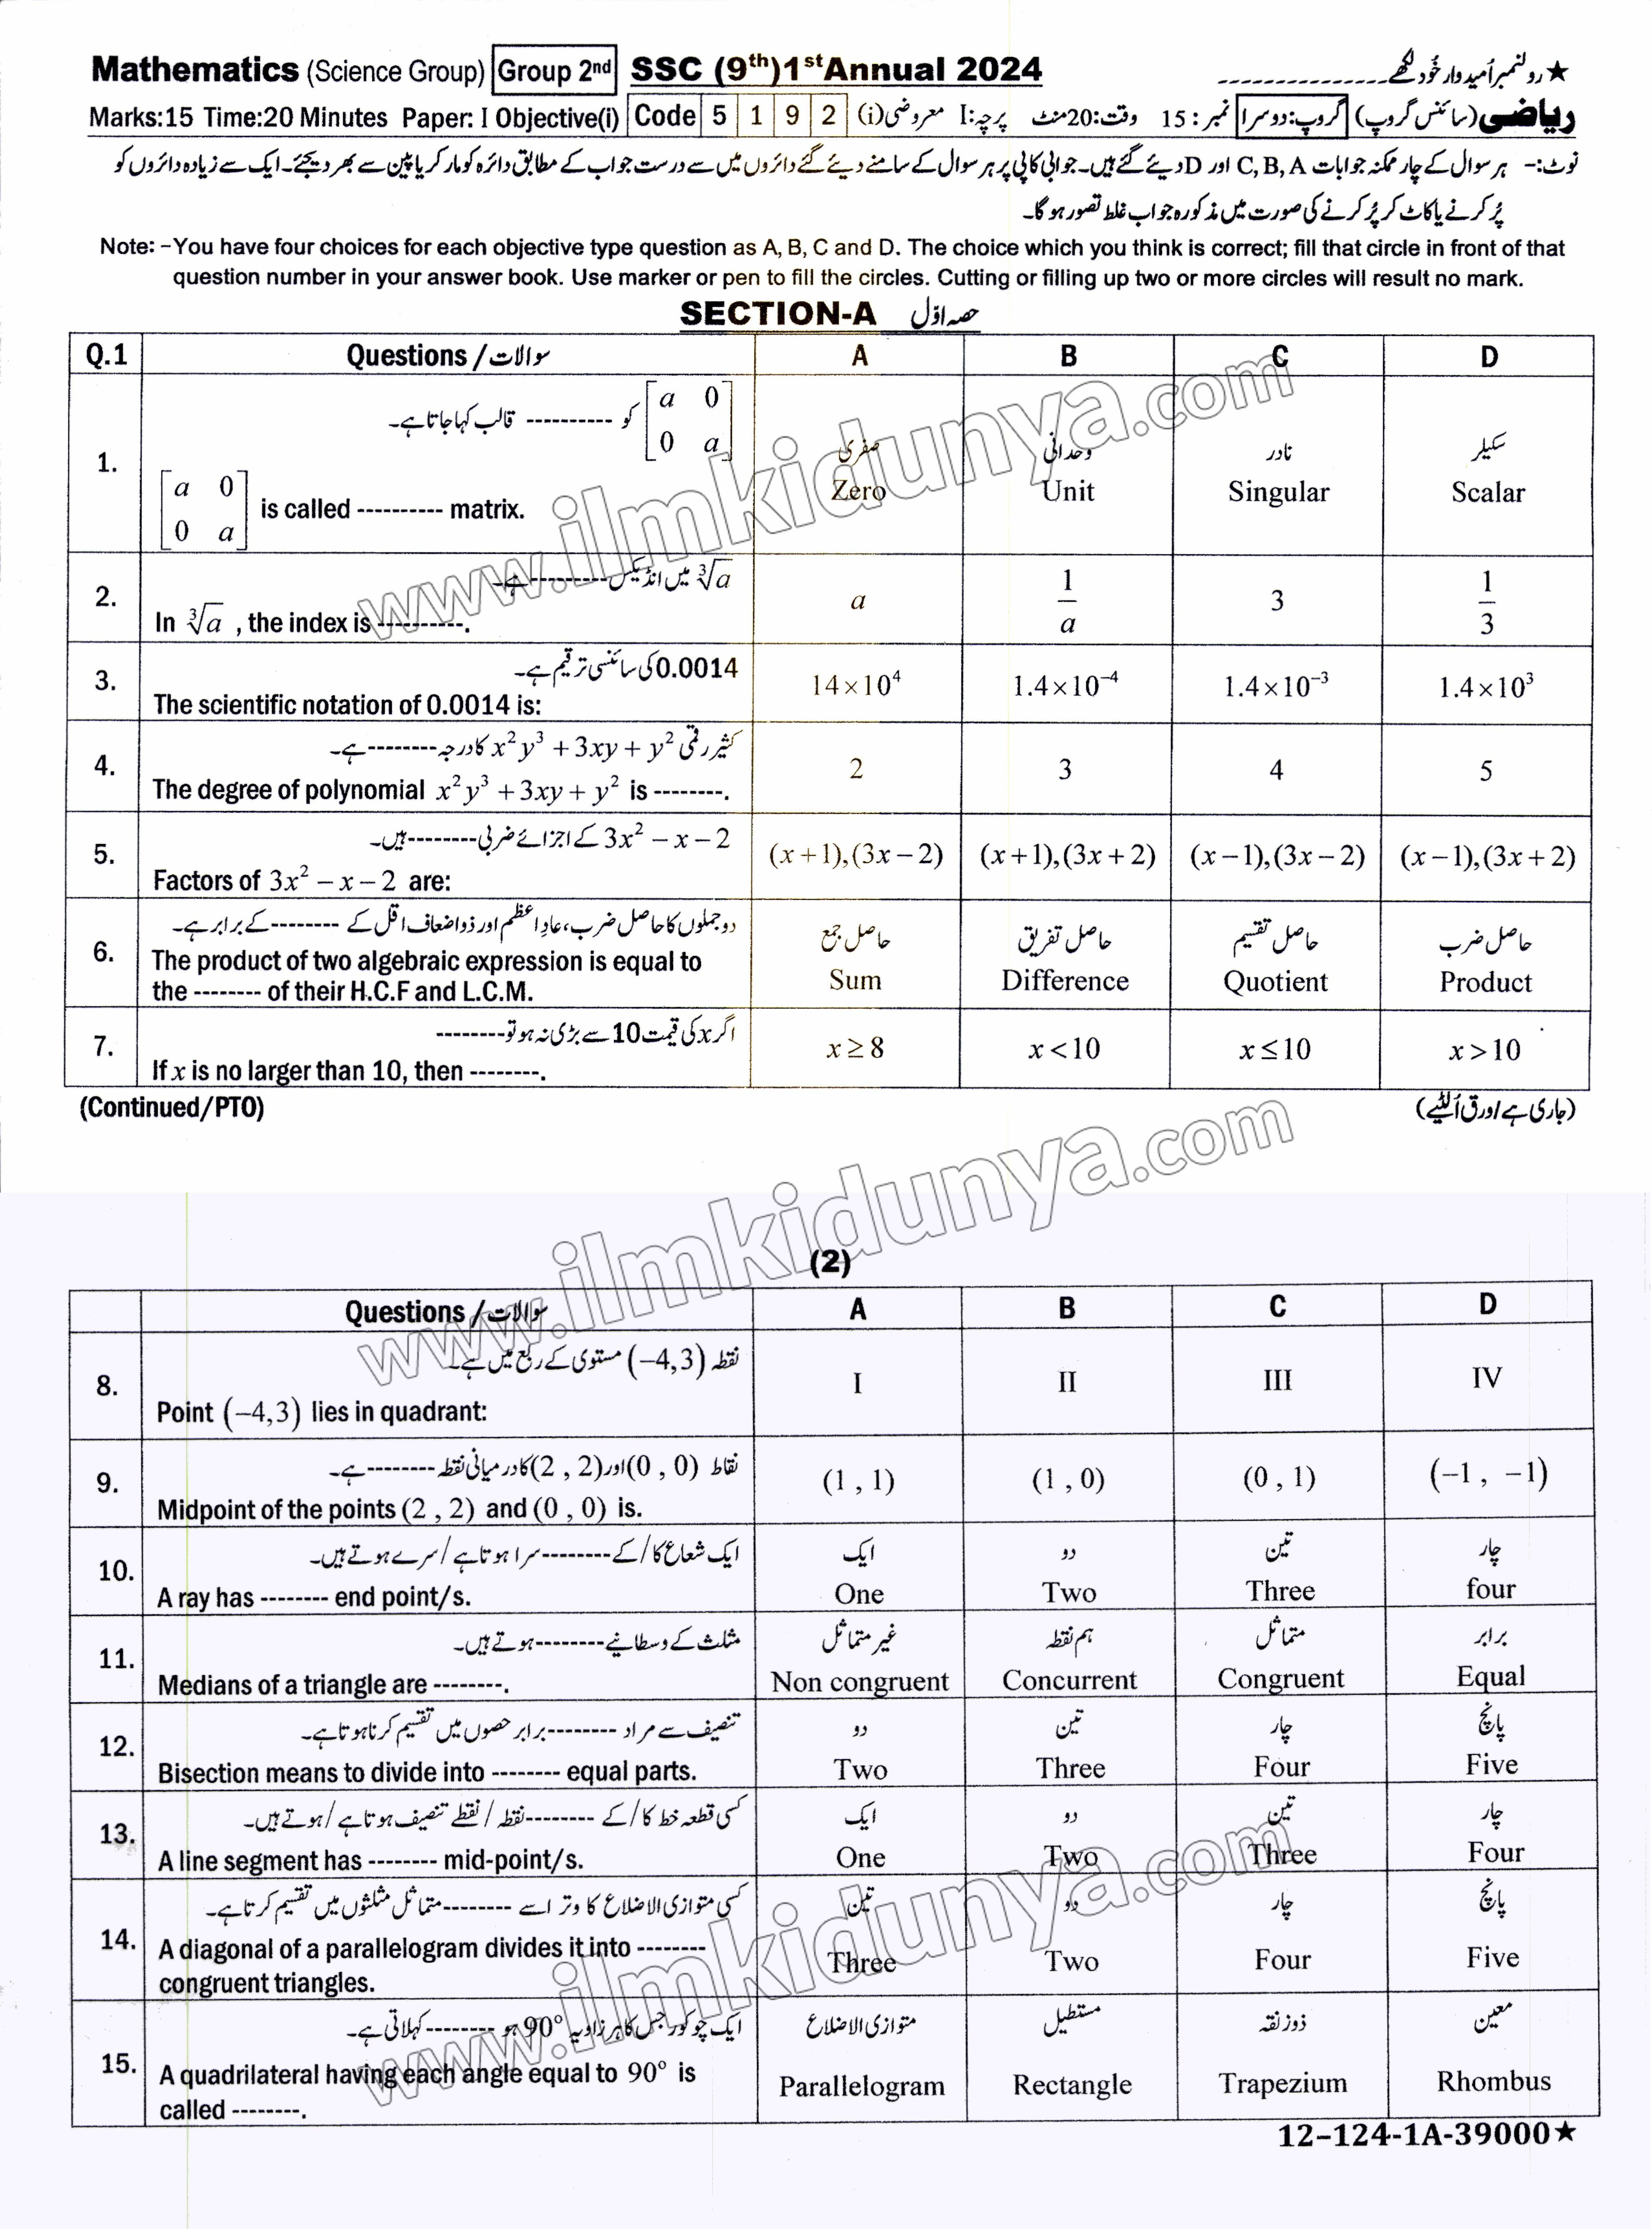 Mathematics (Science Group) Group 2nd SSC (9th) 1st Annual 2024 ★رولنمبر اُمیدوار خُود لکھے---------------
Marks:15 Time:20 Minutes Paper: I Objective(i) Code 5 1 9 2 ریاضی (سائنس گروپ) گروپ: دوسرا نمبر: 15 وقت: 20 منٹ پرچہ: I معروضی (i)
نوٹ:- ہر سوال کے چار ممکنہ جوابات C, B, A اور D دیئے گئے ہیں۔ جوابی کاپی پر ہر سوال کے سامنے دیئے گئے دائروں میں سے درست جواب کے مطابق دائرہ کو مارکر یا پین سے بھر دیجئے۔ ایک سے زیادہ دائروں کو
پُر کرنے یا کاٹ کر پُر کرنے کی صورت میں مذکورہ جواب غلط تصور ہوگا۔
Note: -You have four choices for each objective type question as A, B, C and D. The choice which you think is correct; fill that circle in front of that
question number in your answer book. Use marker or pen to fill the circles. Cutting or filling up two or more circles will result no mark.
SECTION-A حصہ اوّل
Q.1 Questions / سوالات A B C D
1. [a 0; 0 a] کو ---------- قالب کہا جاتا ہے۔
[a 0; 0 a] is called ---------- matrix.
صفری وحدانی نادر سکیلر
Zero Unit Singular Scalar
2. ∛a میں انڈیکس ---------- ہے۔
In ∛a , the index is ----------.
a 1/a 3 1/3
3. 0.0014 کی سائنسی ترقیم ہے۔
The scientific notation of 0.0014 is:
14×10⁴ 1.4×10⁻⁴ 1.4×10⁻³ 1.4×10³
4. کثیر رقمی x²y³ + 3xy + y² کا درجہ -------- ہے۔
The degree of polynomial x²y³ + 3xy + y² is --------.
2 3 4 5
5. 3x² − x − 2 کے اجزائے ضربی -------- ہیں۔
Factors of 3x² − x − 2 are:
(x+1),(3x−2) (x+1),(3x+2) (x−1),(3x−2) (x−1),(3x+2)
6. دو جملوں کا حاصل ضرب، عادِ اعظم اور ذواضعاف اقل کے -------- کے برابر ہے۔
The product of two algebraic expression is equal to
the -------- of their H.C.F and L.C.M.
حاصل جمع حاصل تفریق حاصل تقسیم حاصل ضرب
Sum Difference Quotient Product
7. اگر x کی قیمت 10 سے بڑی نہ ہو تو --------
If x is no larger than 10, then --------.
x ≥ 8 x < 10 x ≤ 10 x > 10
(Continued/PTO) (جاری ہے اورق اُلٹیے)
(2)
Questions / سوالات A B C D
8. نقطہ (−4,3) مستوی کے ربع میں ہے۔
Point (−4,3) lies in quadrant:
I II III IV
9. نقاط (0 , 0) اور (2 , 2) کا درمیانی نقطہ -------- ہے۔
Midpoint of the points (2 , 2) and (0 , 0) is.
(1 , 1) (1 , 0) (0 , 1) (−1 , −1)
10. ایک شعاع کا / کے -------- سرا ہوتا ہے / سرے ہوتے ہیں۔
A ray has -------- end point/s.
ایک دو تین چار
One Two Three four
11. مثلث کے وسطانیے -------- ہوتے ہیں۔
Medians of a triangle are --------.
غیر متماثل ہم نقطہ متماثل برابر
Non congruent Concurrent Congruent Equal
12. تنصیف سے مراد -------- برابر حصوں میں تقسیم کرنا ہوتا ہے۔
Bisection means to divide into -------- equal parts.
دو تین چار پانچ
Two Three Four Five
13. کسی قطعہ خط کا / کے -------- نقطہ / نقطے تنصیف ہوتا ہے / ہوتے ہیں۔
A line segment has -------- mid-point/s.
ایک دو تین چار
One Two Three Four
14. کسی متوازی الاضلاع کا وتر اسے -------- متماثل مثلثوں میں تقسیم کرتا ہے۔
A diagonal of a parallelogram divides it into --------
congruent triangles.
تین دو چار پانچ
Three Two Four Five
15. ایک چوکور جس کا ہر زاویہ 90° ہو -------- کہلاتی ہے۔
A quadrilateral having each angle equal to 90° is
called --------.
متوازی الاضلاع مستطیل ذوزنقہ معین
Parallelogram Rectangle Trapezium Rhombus
12-124-1A-39000★
www.ilmkidunya.com
www.ilmkidunya.com
www.ilmkidunya.com